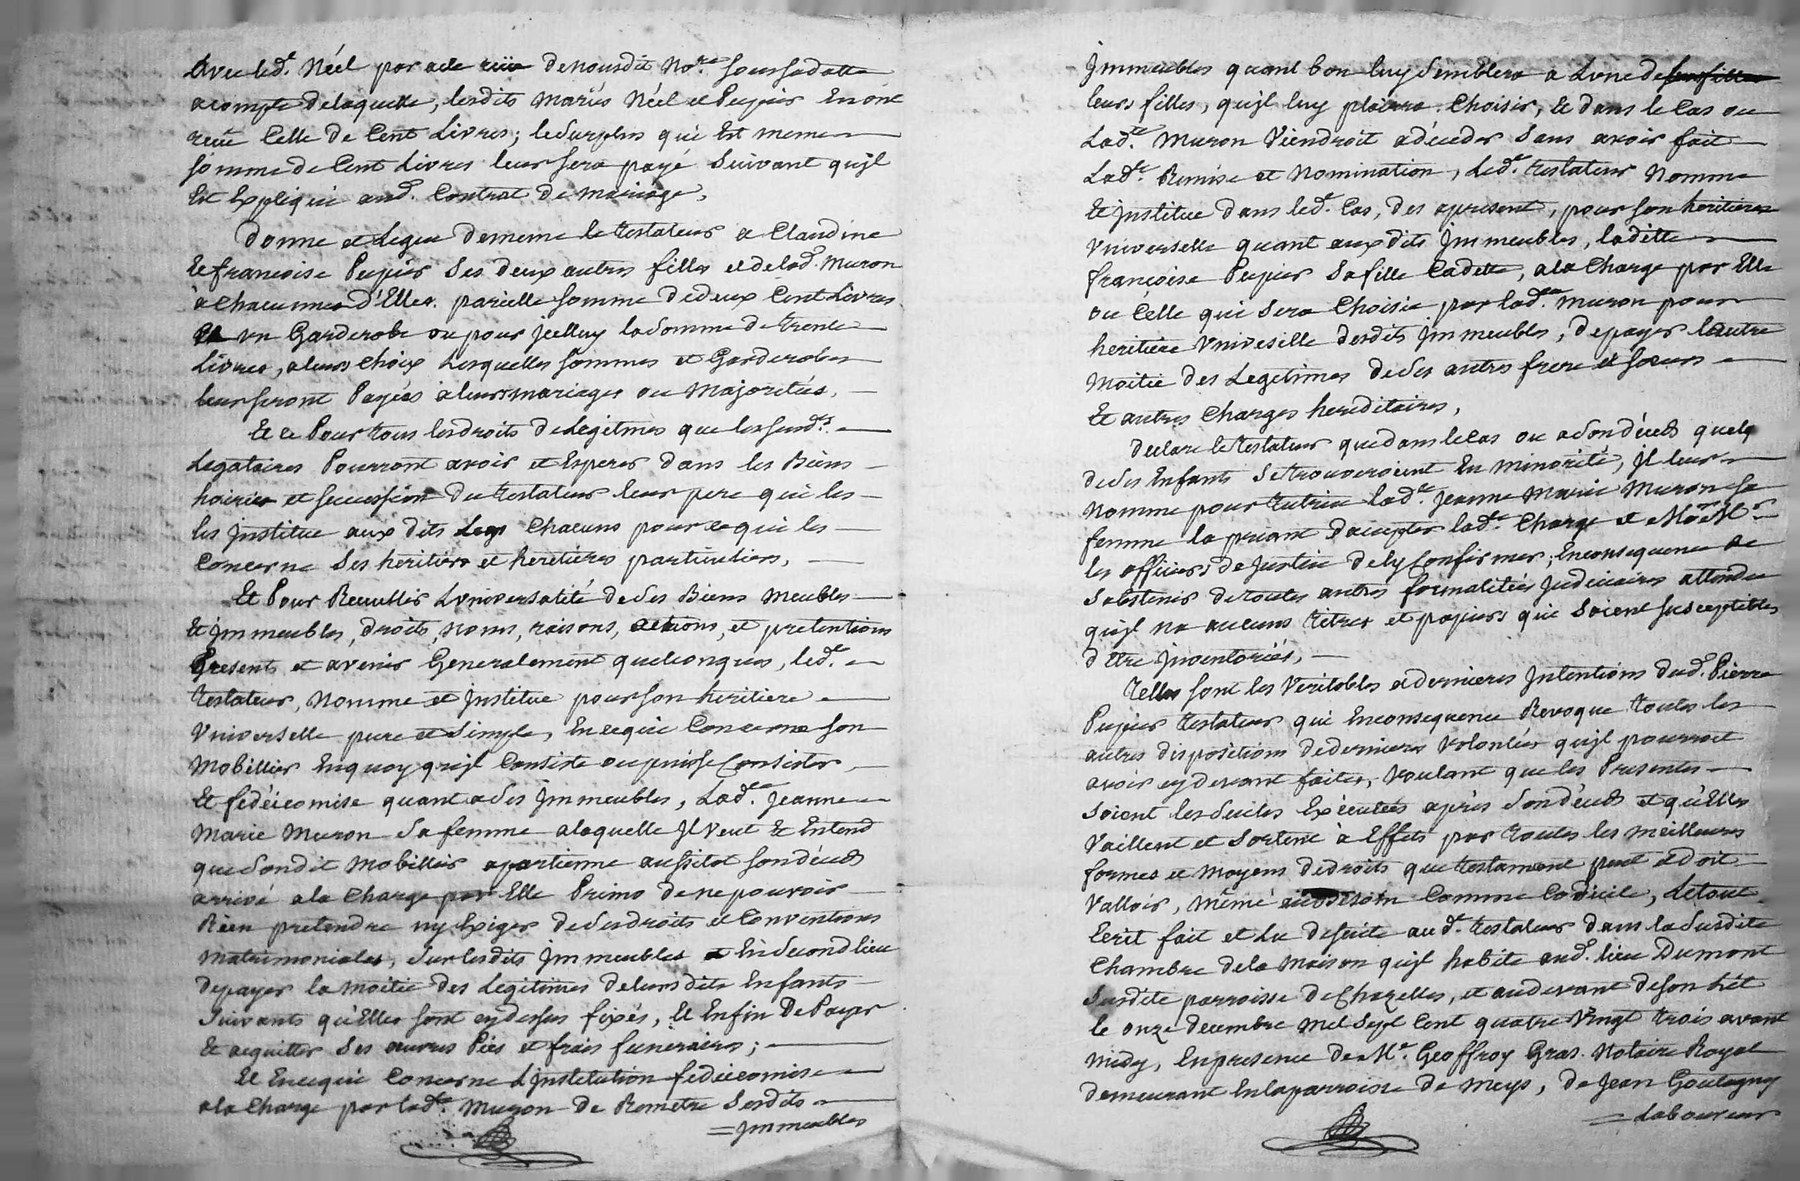 Avec led.t Néel par acte reçu denousdit No.re soussadatte
acompte delaquelle, lesdits mariés Néel et Pupier En ont
reçue Celle de Cent Livres; lesurplus qui Est meme
somme de Cent Livres leur sera payé suivant quil
Est Expliqué aud. Contrat de mariage,
Donne et Legue dememe le testateur a Claudine
et francoise Pupier ses deux autres filles et delad. Muron
à chacunnes d'Elles. pareille somme dedeux Cent Livres
Et un Garderobe ou pour jcelluy lasomme de trente
Livres, aleurs choix Lesquelles sommes et Garderobes
leurseront Payés àleursmariages ou Majorités,
Et ce Pour tous lesdroits de Legitimes que lessusd.ts
Legataires Pourront avoir et Esperer dans les Biens
hoiries et succession du testateur leur pere qui les
les jnstitue aux dits Legs Chacuns pour ce qui les
Concerne ses heritiers et heretieres particuliers,
Et Pour Recuellir Luniversalité deses Biens Meubles
et jmmeubles, droits, noms, raisons, actions, et pretentions
Present et avenir Generalement quelconques, led.t
testateur, nomme et jnstitue pour son heritiere
Universelle pure et simple, En cequi Concerne son
Mobillier Enquoy quil Consiste ou puisse Consister,
Et fedéicomise quant ases jmmeubles, Lad.te Jeanne
Marie Muron sa femme alaquelle Jl veut Et Entend
que sondit mobillier apartienne aussitot sondéceds
arrivé ala Charge par Elle Primo de ne pouvoir
Rien pretendre ny Exiger desesdroits et Conventions
Matrimoniales, sur lesdits jmmeubles et Ensecond lieu
depayer la moitié des Legitimes deleursdits Enfants
suivants qu'Elles sont cydessus fixés, Et Enfin De Payer
Et acquitter ses œuvres Pies et frais funeraires;
Et Encequi Concerne Ljnstitution fedéicomise
ala Charge par lad.te Muron de Remetre sesdits
= jmmeubles
Jmmeubles quant bon luy semblera a Lune de
leurs filles, quil luy plaira Choisir, Et dans le Cas ou
Lad.te Muron Viendroit adéceder sans avoir fait
Lad.te Remise et nomination, Led.t testateur nomme
Et jnstitue dans led.t Cas, des apresent, pour son heritiere
Universelle quant aux dits Jmmeubles, ladite
francoise Pupier sa fille Cadette, ala Charge par Elle
ou Celle qui sera Choisie par lad.te Muron pour
heritière Universelle desdits jmmeubles, depayer Lautre
Moitié des Legitimes deses autres frere et sœurs
Et autres Charges hereditaires,
Declare le testateur que dans le Cas ou a son décéds quelq
deses Enfants se trouveroient En minorité, Jl leur
nomme pour tutrice Lad.te Jeanne Marie Muron sa
femme la priant daccepter lad.te Charge et
les officiers de justice dely Confirmer; Enconsequence de
sabstenir detoutes autres formalités judiciaires attendu
quil na aucuns titres et papiers qui soient susceptibles
d'être jnventoriés,
Telles sont les Veritables et dernieres jntentions dud. Pierre
Pupier testateur qui Enconsequence Revoque toutes les
autres dispositions dedernieres Volontés quil pourroit
avoir cydevant faites, voulant que les Presentes
soient les seules Executées après sondéceds et qu'Elles
Vaillent et sortent à Effets par toutes les meilleures
formes et Moyens dedroits que testament peut et doit
Valloir, même Comme Codicile, Letout
Ecrit fait et Lu desuite aud. testateur dans la susdite
Chambre dela Maison quil habite aud. lieu Dumont
susdite parroisse de Chazelles, et audevant deson Lit
le onze decembre mil sept Cent quatre vingt trois avant
midy, Enpresence de M.r Geoffroy Gras. Notaire Royal
demeurant Enlaparroisse de Meys, de Jean Goutagny
= Laboureur